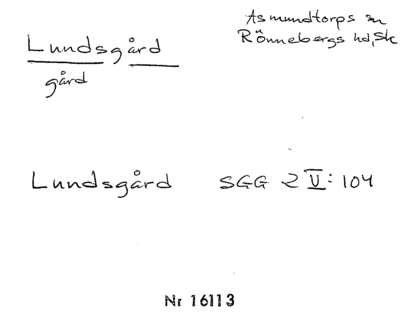 Lundsgård
gård
Asmundtorps sn
Rönnebergs hd, Sk
Lundsgård SGG 2 V: 104
Nr 16113